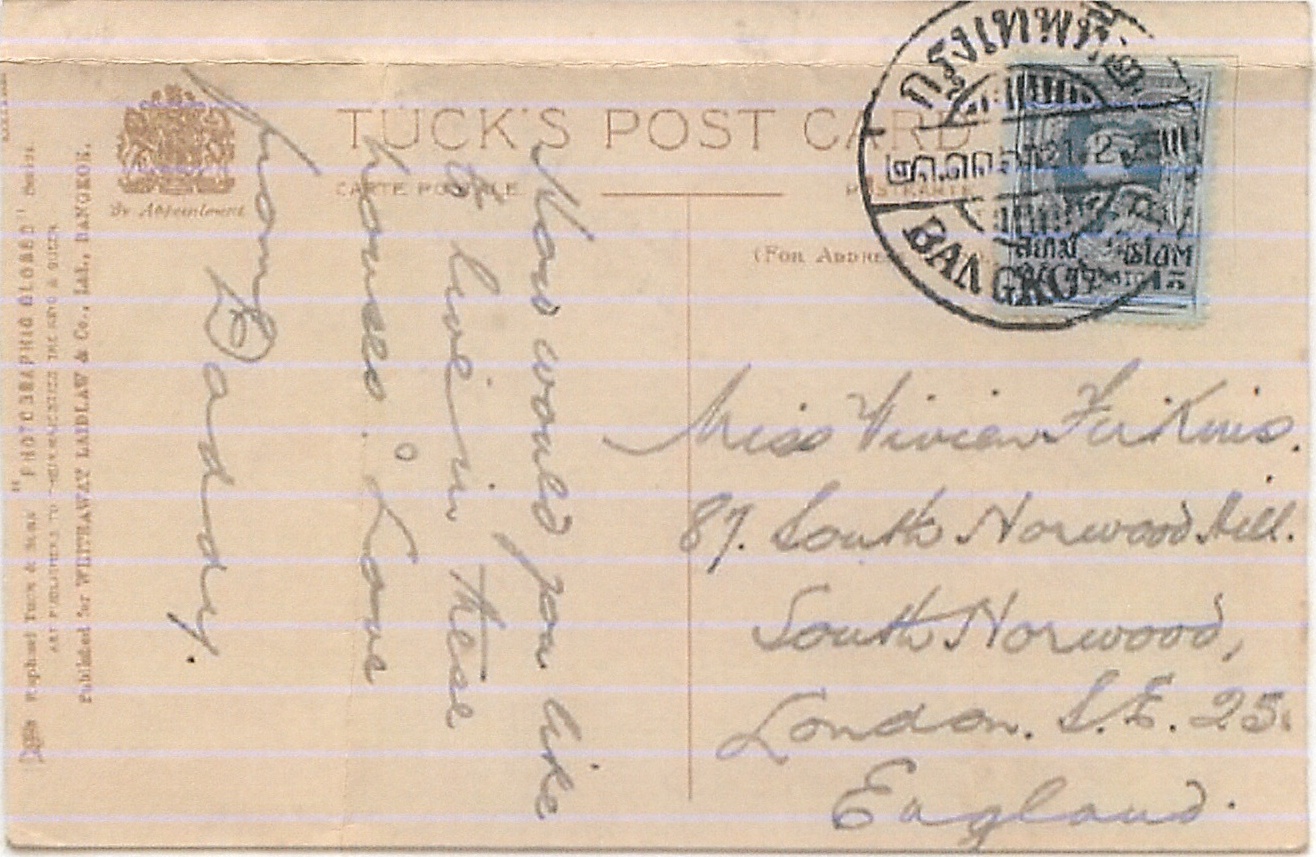 TUCK'S POST CARD
CARTE POSTALE
POSTKARTE
By Appointment
(For Address
กรุงเทพที่๒
BANGKOK
สยาม
Raphael Tuck & Sons "PHOTOGRAPHIC GLOBED" Series
ART PUBLISHERS TO THEIR MAJESTIES THE KING & QUEEN
Published for WHITEAWAY LAIDLAW & Co., Ltd., BANGKOK.
How would you like
to live in these
houses. Love
from
Daddy.
Miss Vivien Firkins.
87. South Norwood Hill.
South Norwood,
London. S.E. 25.
England.